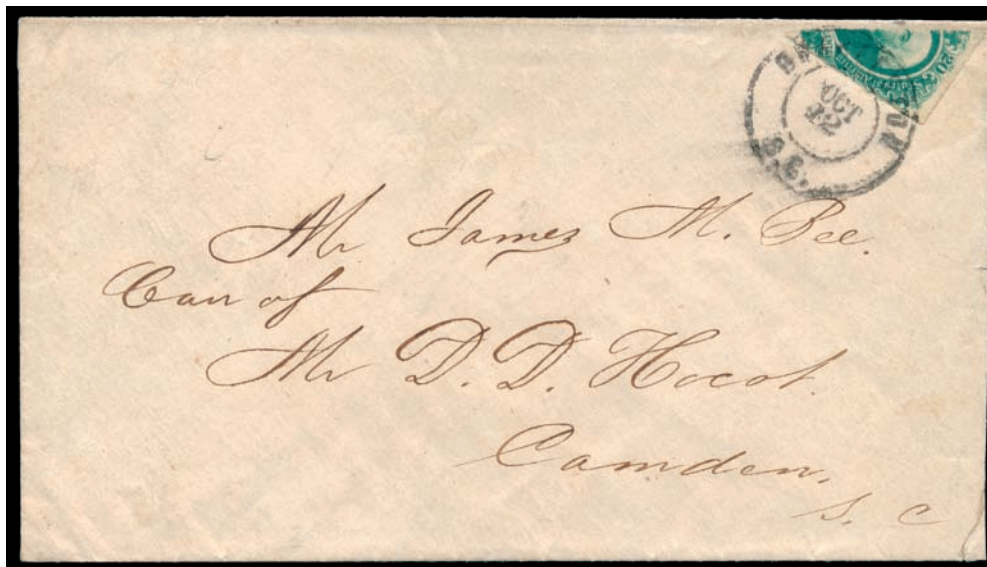 OCT
12
S.C.
Mr James M. Pee.
Care of
Mr D. D. Hocot.
Camden,
S. C